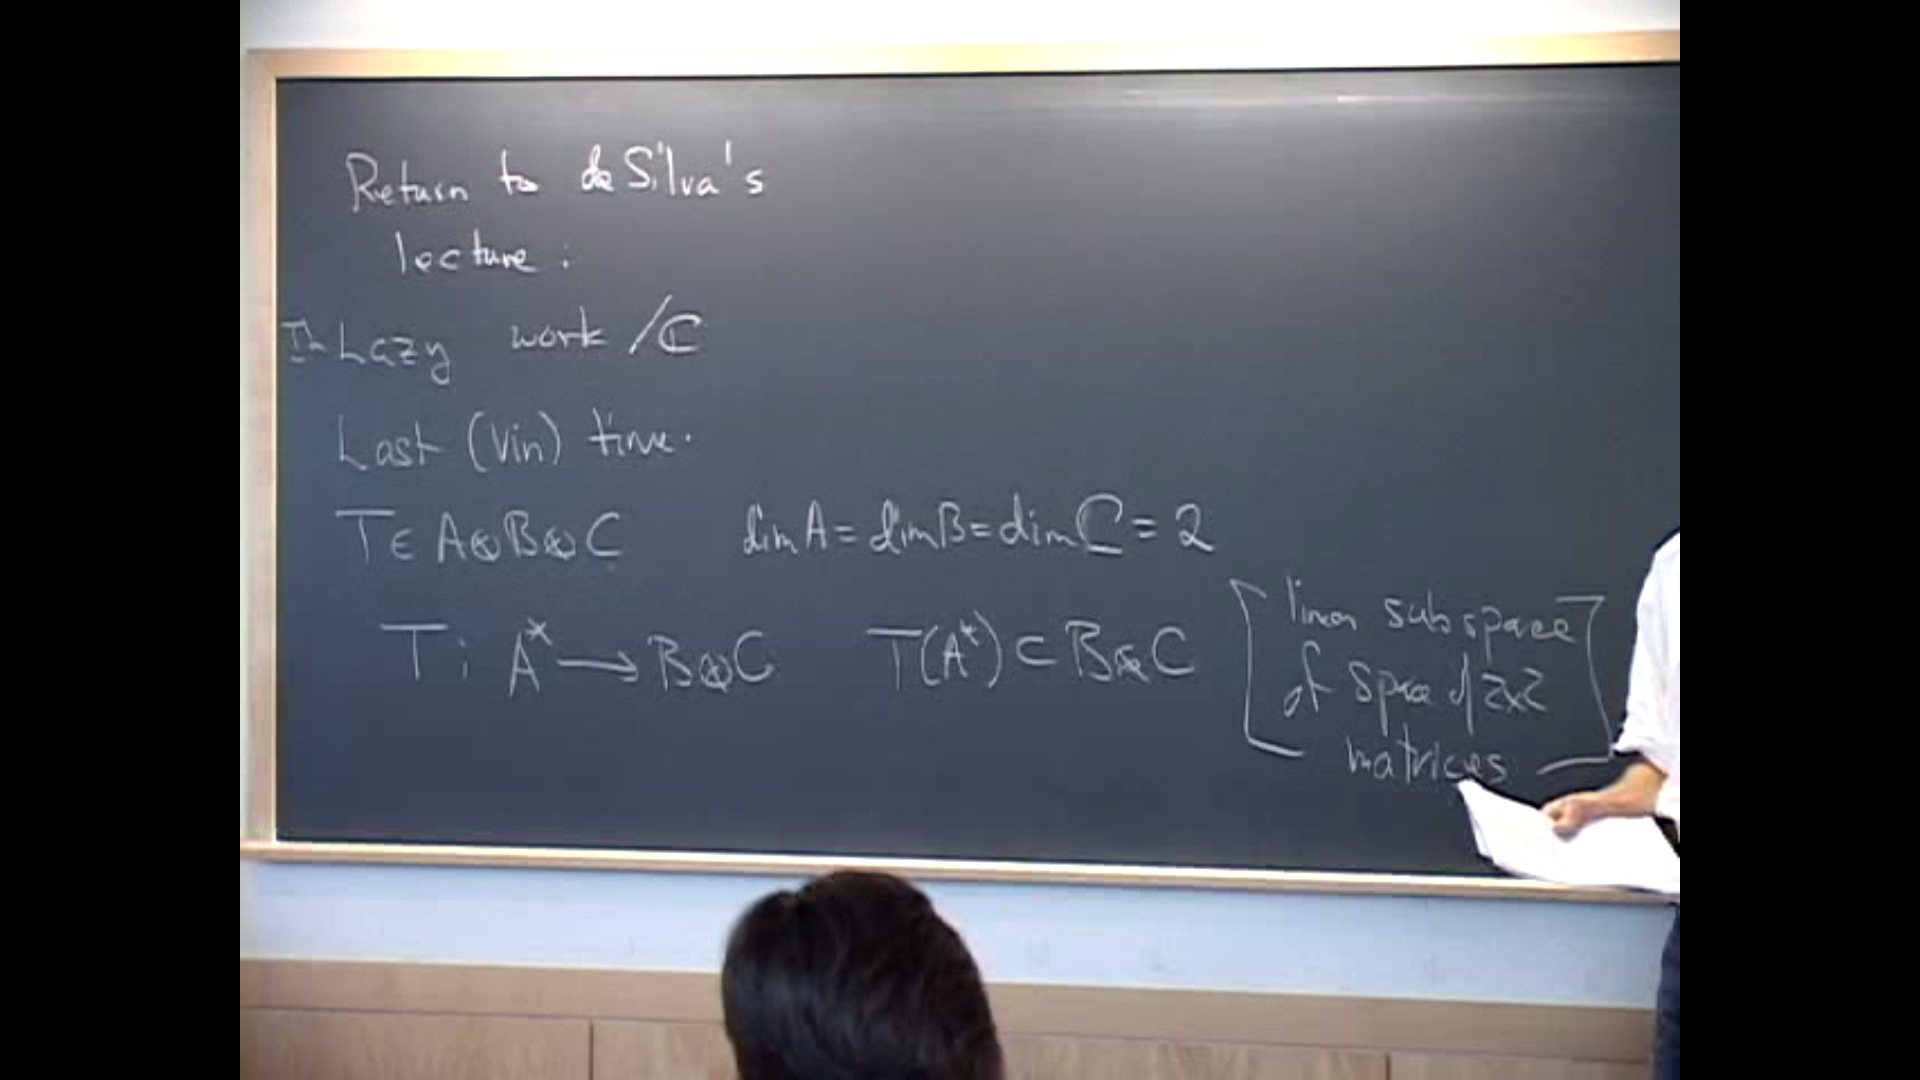 Return to de Silva's
lecture:
I'm Lazy work /ℂ
Last (Vin) time.
T ∈ A⊗B⊗C dim A = dim B = dim C = 2
T: A* → B⊗C T(A*) ⊂ B⊗C
linear subspace
of space of 2x2
matrices